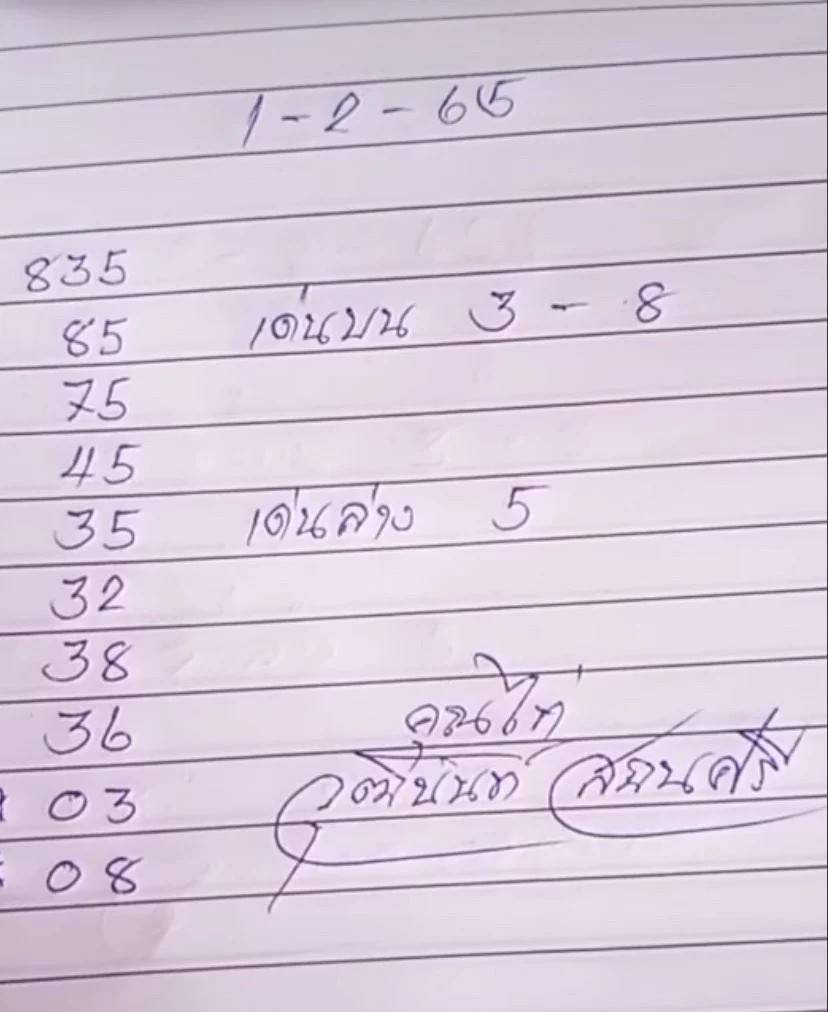 1 - 2 - 65
835
85 เด่นบน 3 - 8
75
45
35 เด่นล่าง 5
32
38
36 คุณไท
03 วุฒินันท์ สอนศรี
08